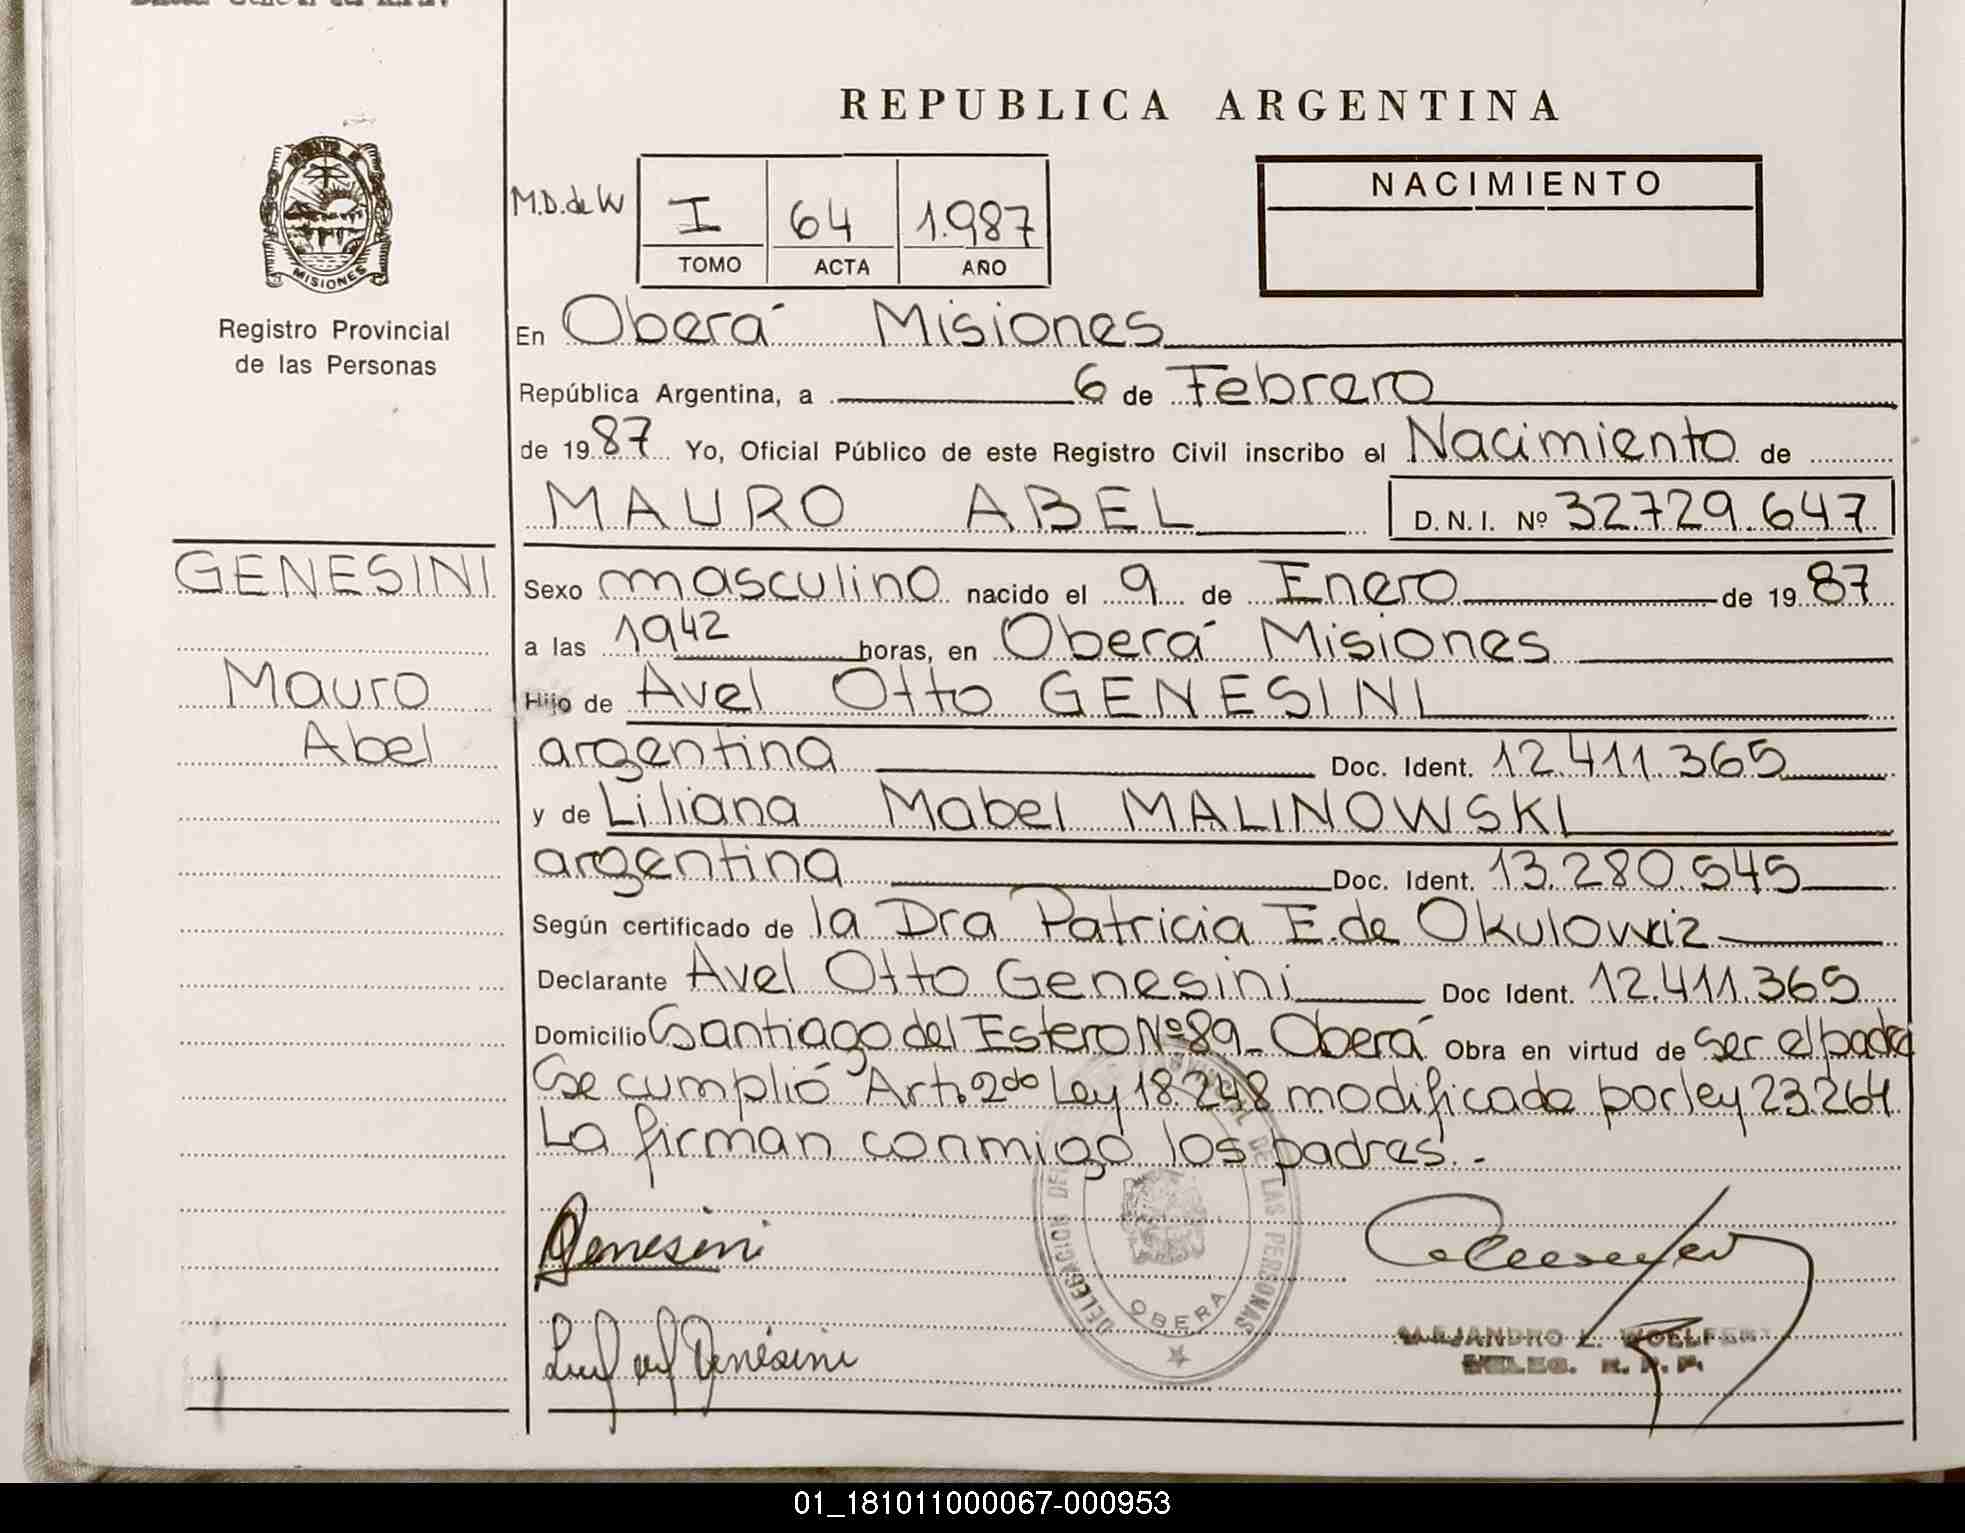 REPUBLICA ARGENTINA
MISIONES
Registro Provincial
de las Personas
GENESINI
Mauro
Abel
M.D. de W
I 64 1.987
TOMO ACTA AÑO
NACIMIENTO
En Oberá Misiones
República Argentina, a 6 de Febrero
de 1987 Yo, Oficial Público de este Registro Civil inscribo el Nacimiento de
MAURO ABEL D.N.I. Nº 32729.647
Sexo masculino nacido el 9 de Enero de 1987
a las 1942 horas, en Oberá Misiones
Hijo de Avel Otto GENESINI
argentina Doc. Ident. 12.411.365
y de Liliana Mabel MALINOWSKI
argentina Doc. Ident. 13.280.545
Según certificado de la Dra Patricia E. de Okulovxiz
Declarante Avel Otto Genesini Doc Ident. 12.411.365
Domicilio Santiago del Estero Nº 89_ Oberá Obra en virtud de Ser el padre
Se cumplió Art. 2do Ley 18.248 modificada por ley 23.264
La firman conmigo los padres.-
DELEGACION DE LAS PERSONAS
OBERA
Genesini
Genésini
ALEJANDRO L. WOELFERT
DELEG. R. P. P.
01_181011000067-000953